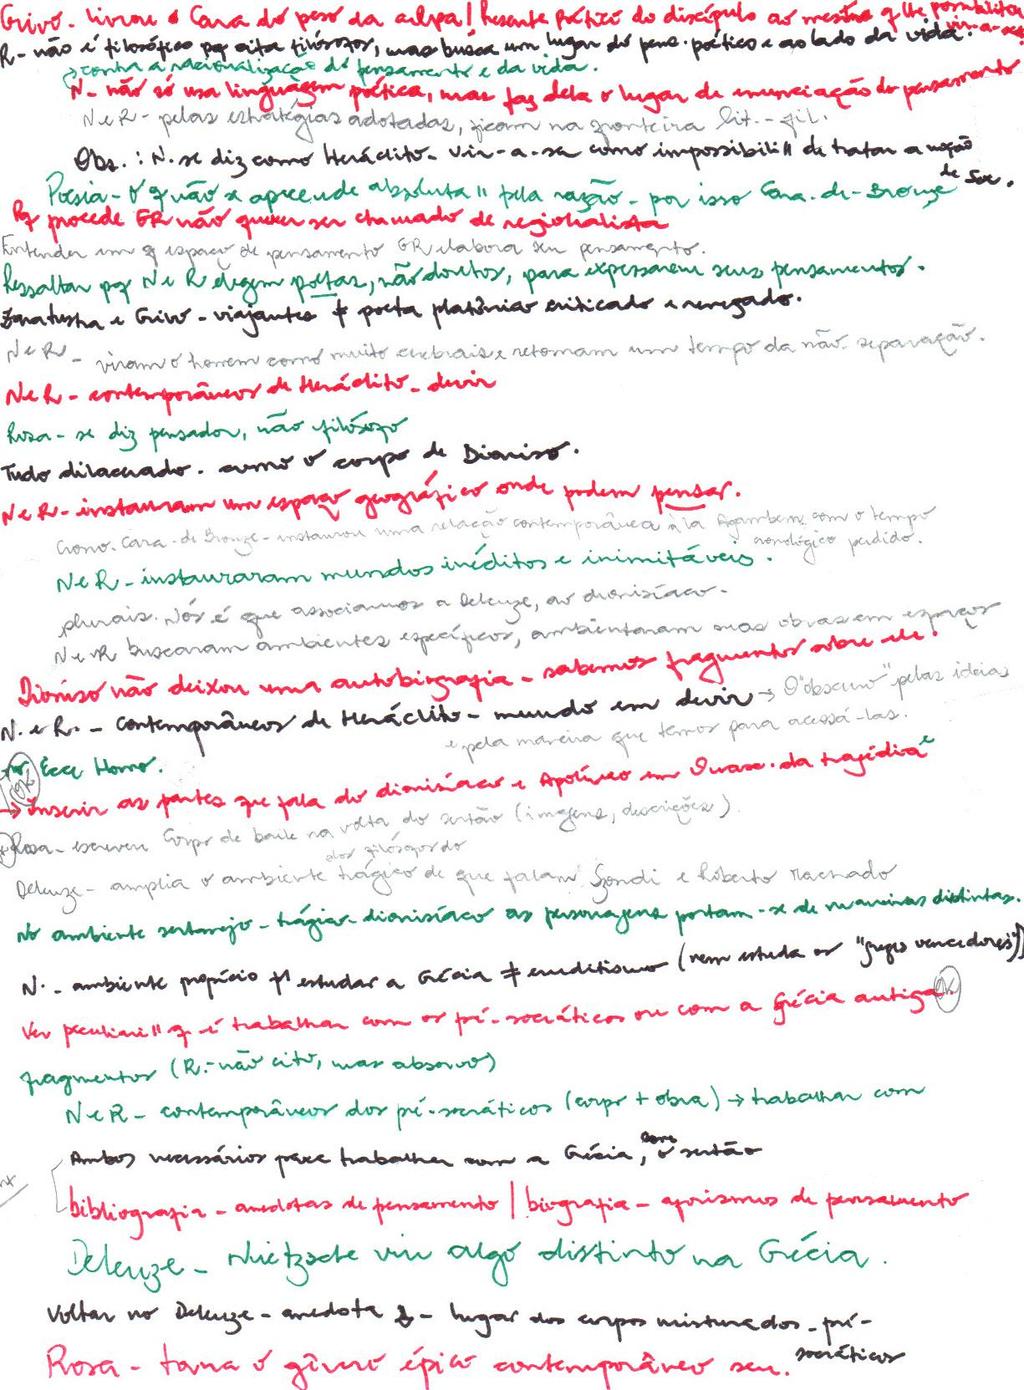 Grivo. livrou o Cara do peso da culpa! Presente poético do discípulo ao mestre q lhe possibilitou vir-a-ser.
R- não é filosófico pq cita filósofos, mas busca um lugar do pens. poético e ao lado da vida.
→ contra a racionalização do pensamento e da vida.
N- não só usa linguagem poética, mas faz dela o lugar de enunciação do pensamento
N e R - pelas estratégias adotadas, ficam na fronteira lit. - fil.
Obs.: N. se diz como Heráclito - vir-a-ser como impossibili// de tratar a noção de Ser.
Poesia - O q não se apreende absoluta// pela razão - por isso Cara-de-Bronze
Pq procede GR não querer ser chamado de regionalista
Entender em q espaço de pensamento GR elabora seu pensamento.
Ressaltar pq N e R elegem poetas, não doutos, para expressarem seus pensamentos.
Zaratustra e Grivo - viajantes ≠ poeta platônico criticado e renegado.
N e R - viram o homem como muito cerebrais e retomam um tempo da não-separação.
N e R - contemporâneos de Heráclito - devir
Rosa - se diz pensador, não filósofo
Tudo dilacerado. como o corpo de Dioniso.
N e R - instauram um espaço geográfico onde podem pensar.
Cara-de-Bronze - instaurou uma relação contemporânea à la Agamben com o tempo cronológico perdido.
N e R - instauraram mundos inéditos e inimitáveis.
plurais. Nós é que associamos a Deleuze, ao dionisíaco.
N e R buscaram ambientes específicos, ambientaram suas obras em espaços
Dioniso não deixou uma autobiografia - sabemos fragmentos sobre ele.
N. e R. - contemporâneos de Heráclito - mundo em devir → O "obscuro" pelas ideias
e pela maneira que temos para acessá-las.
Ecce Homo.
ok
→ Inserir as partes que fala do dionisíaco e Apolíneo em O nasc. da tragédia e
Rosa - escreveu Corpo de baile na volta do sertão (imagens, descrições).
Deleuze - amplia o ambiente trágico de que falam Szondi e Roberto Machado
No ambiente sertanejo - trágico-dionisíaco as personagens portam-se de maneiras distintas.
N. - ambiente propício p/ estudar a Grécia ≠ eruditismo (nem estuda os "gregos vencedores")
Ver peculiari// q é trabalhar com os pré-socráticos ou com a Grécia antiga ok
fragmentos (R. - não cito, mas absorvo)
N e R - contemporâneos dos pré-socráticos (corpo + obra) → trabalhar com
Ambos necessários para trabalhar com a Grécia, com o sertão
bibliografia - anedotas de pensamento | biografia - aforismos de pensamento
Deleuze - Nietzsche viu algo distinto na Grécia.
Voltar no Deleuze - anedota - lugar dos corpos misturados - pré-socráticos
Rosa - torna o gênero épico contemporâneo seu.